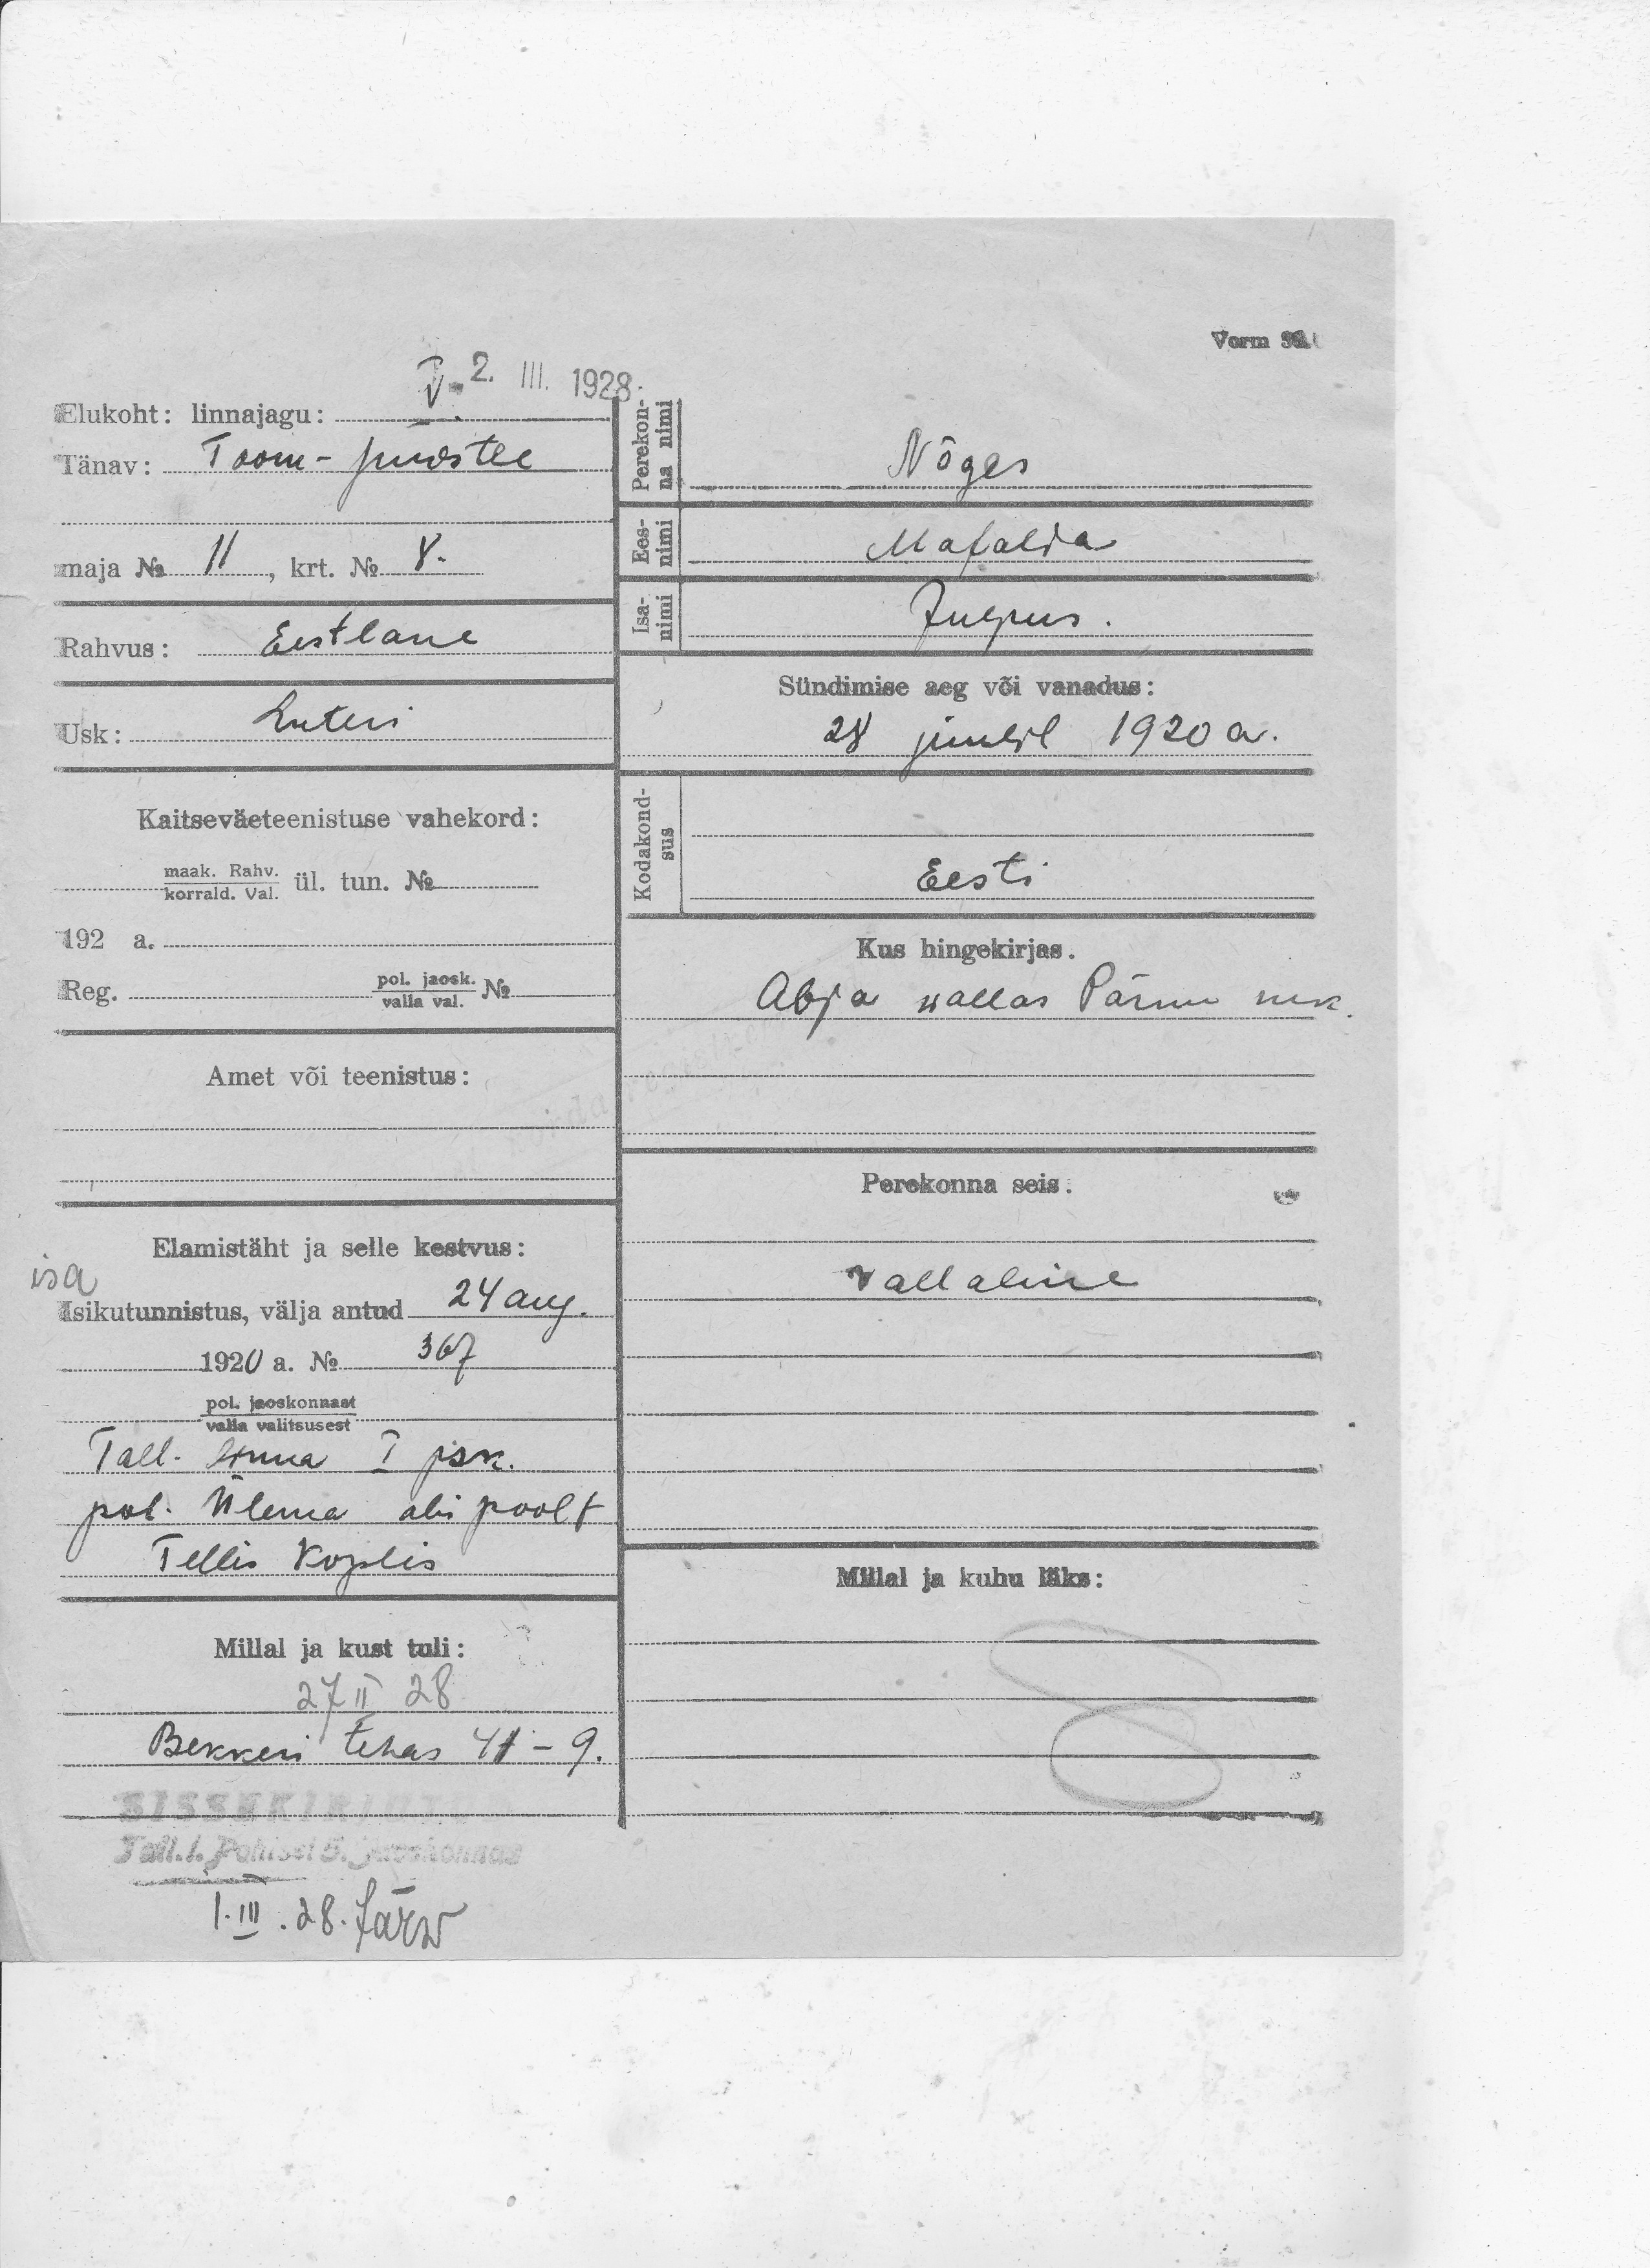 Vorm
V. 2. III. 1928.
Elukoht: linnajagu:
Tänav: Toom-puiestee
maja № 11, krt. № 8.
Rahvus: Eestlane
Usk: Luteri
Kaitseväeteenistuse vahekord:
maak. Rahv.
korrald. Val. ül. tun. №
192 a.
Reg. pol. jaosk. №
valla val.
Amet või teenistus:
Elamistäht ja selle kestvus:
isa
Isikutunnistus, välja antud 24 aug.
1920 a. № 367
pol. jaoskonnast
valla valitsusest
Tall. linna I jsk.
pol. ülema abi poolt
Tellis Koplis
Millal ja kust tuli:
27 II 28
Bekkeri tehas 41-9.
SISSEKIRJUT
Tall. l. Politsei 5. jaoskonnas
1.III.28. Järw
Perekon-
na nimi
Nõges
Ees-
nimi
Mafalda
Isa-
nimi
Julius.
Sündimise aeg või vanadus:
28 juunil 1920 a.
Kodakond-
sus
Eesti
Kus hingekirjas.
Abja wallas Pärnu mk.
Perekonna seis.
vallaline
Millal ja kuhu läks: